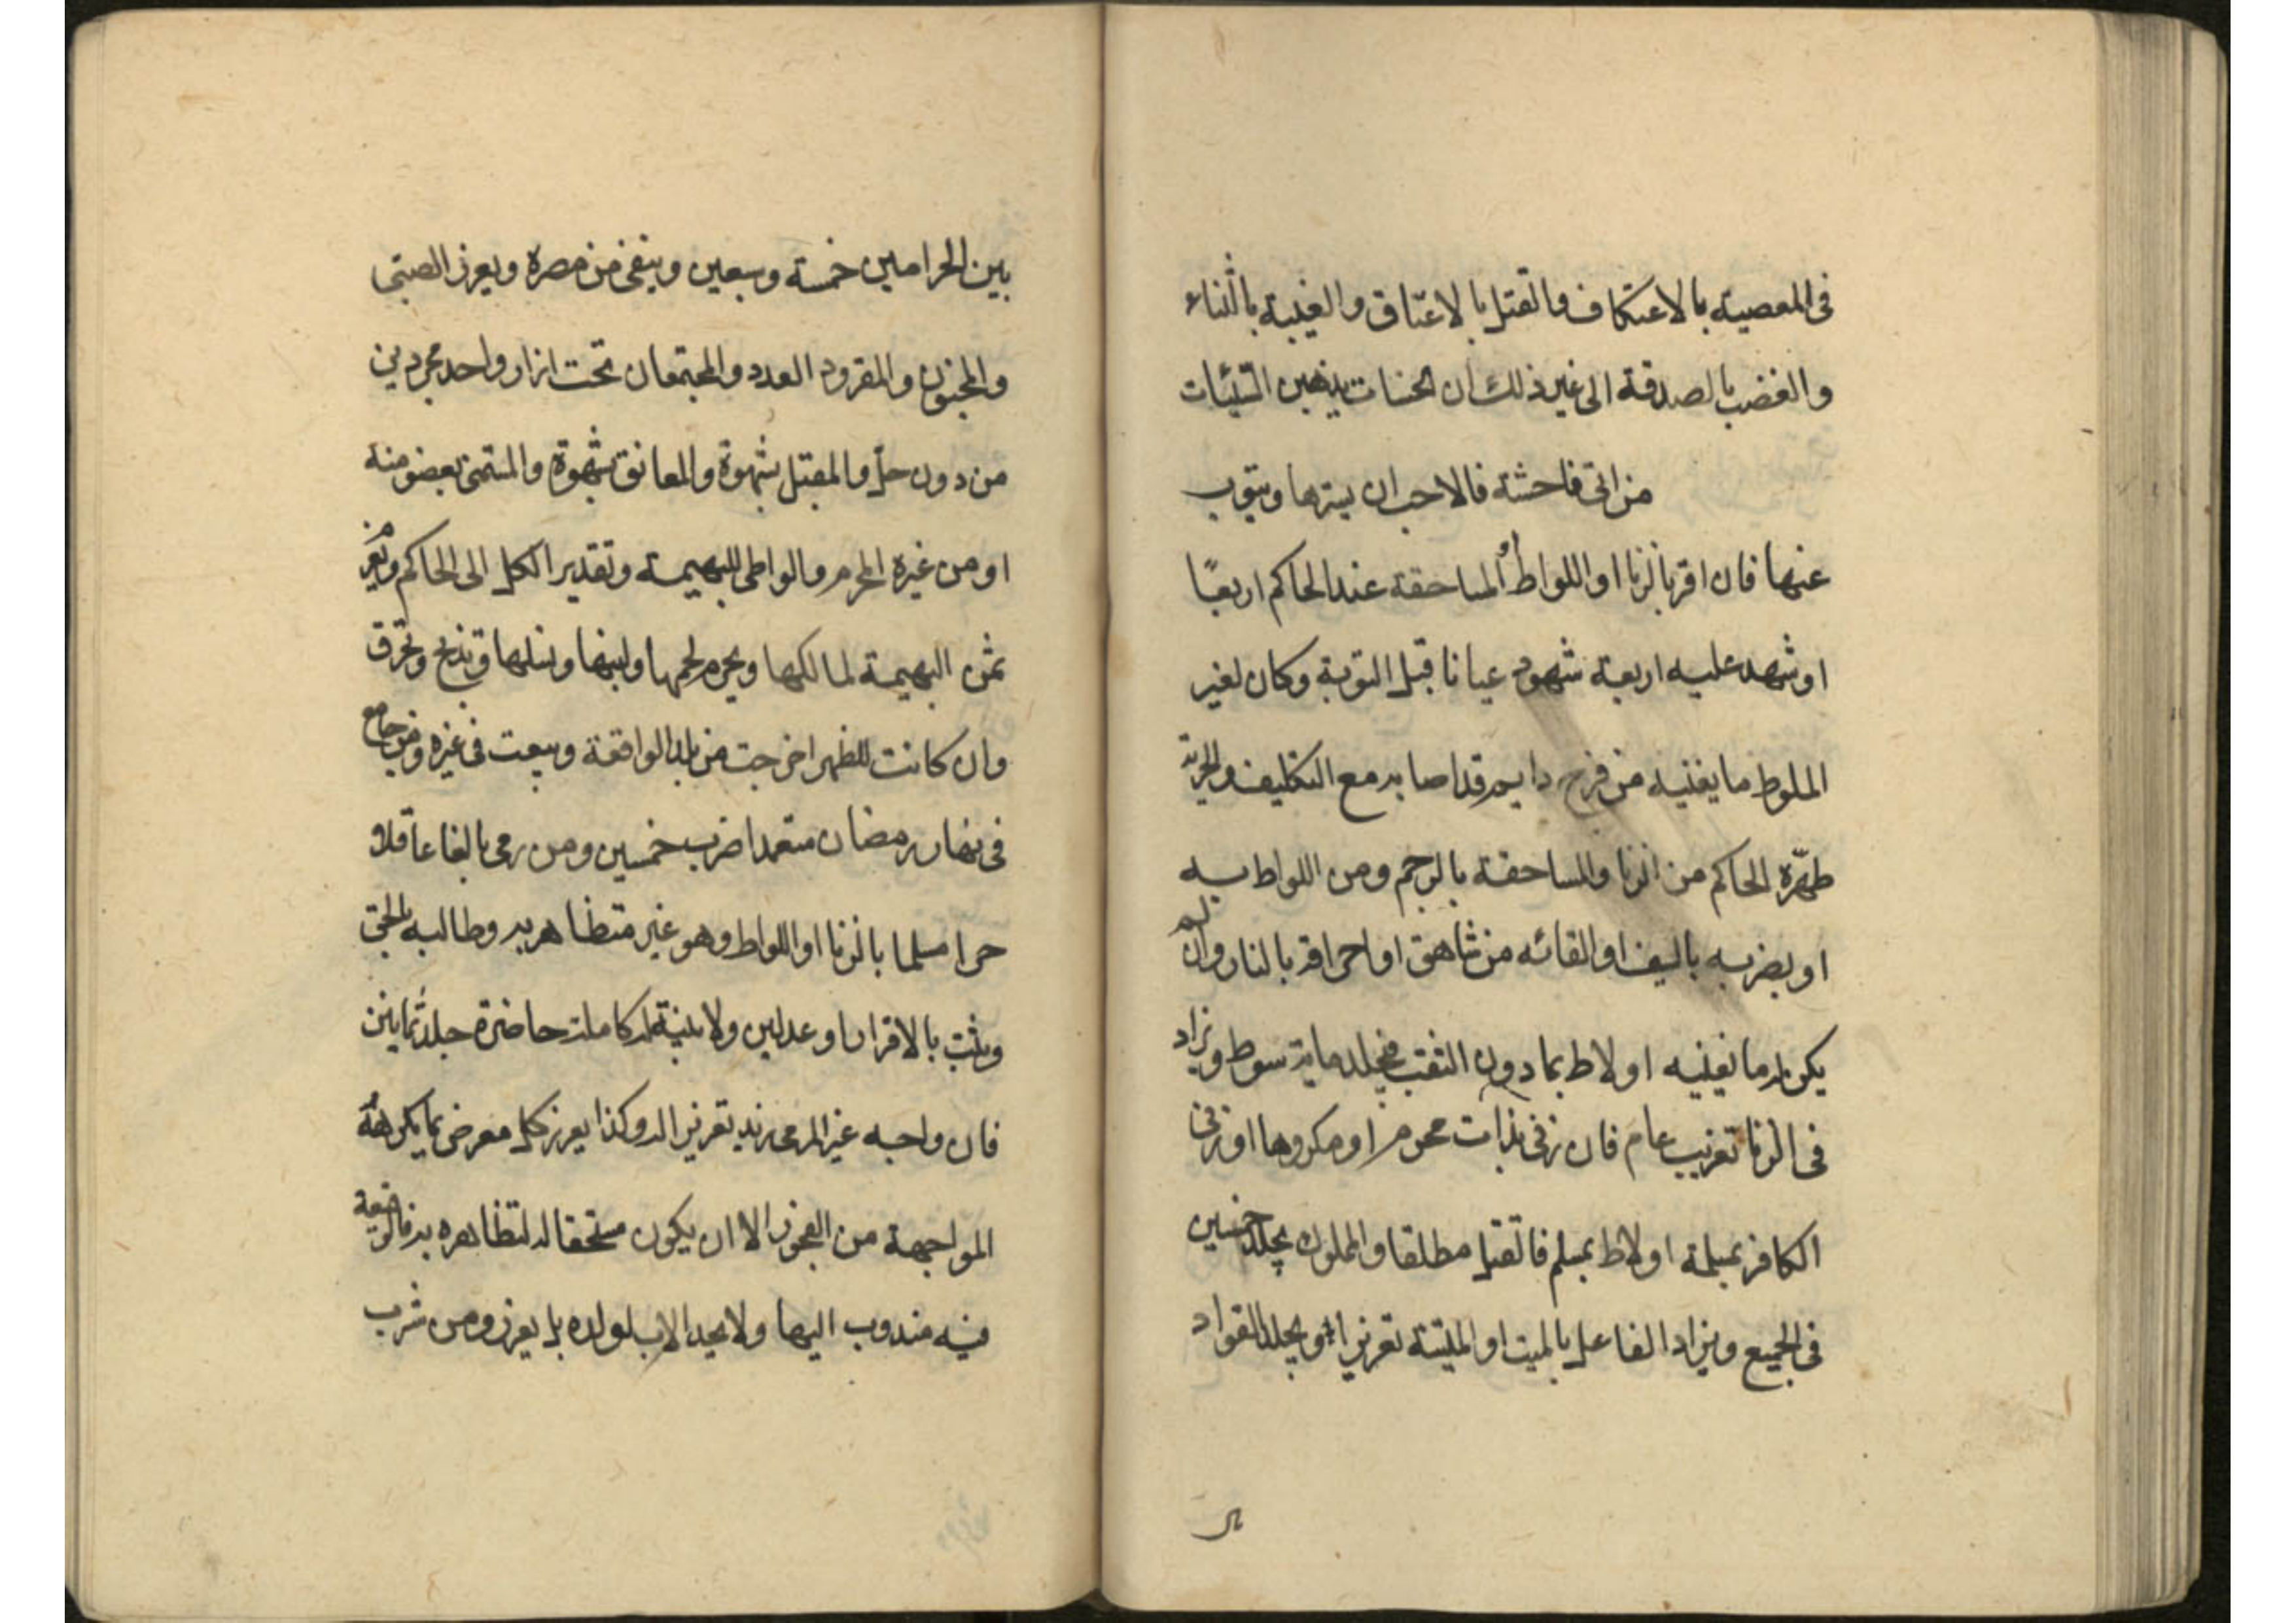 فى المعصية بالاعتكاف والقتل بالاعتاق والغيبة بالثناء
والغضب بالصدقة الى غير ذلك ان الحسنات يذهبن السّيّئات
من اتى فاحشة فالاحب ان يسترها ويتوب
عنها فان اقر بالزنا او اللواط أو المساحقة عند الحاكم اربعًا
او شهد عليه اربعة شهود عيانا قبل التوبة وكان لغير
الملوط ما يغنيه من فرج دايم قد اصابه مع التكليف والحرية
طهّره الحاكم من الزنا والمساحقة بالرجم ومن اللواط به
او بضربه بالسيف او القائه من شاهق او احراقه بالنار وان لم
يكن له ما يغنيه او لاط بما دون الثقب فيجلد ماية سوط ويزاد
فى الزنا تغريب عام فان زنى بذات محرم او مكروها او زنى
الكافر بمسلمة او لاط بمسلم فالقتل مطلقا والمملوك يجلد خمسين
فى الجميع ويزاد الفاعل بالميت او الميتة تعزيرا ويجلد القواد
بين الحرامين خمسة وسبعين وينفى من مصره ويعزر الصبى
والمجنون والمقر دون العدد والمجتمعان تحت ازار واحد مجردين
من دون حلّ والمقبّل بشهوة والمعانق بشهوة والمستمنى بعضو منه
او من غيره المحرم والواطى للبهيمة وتقدير الكل الى الحاكم ويغرم
ثمن البهيمة لمالكها ويحرم لحمها ولبنها ونسلها وتذبح وتحرق
وان كانت للظهر اخرجت من بلد الواقعة وبيعت فى غيره ومن جامع
فى نهار رمضان متعمدا ضرب خمسين ومن رمى بالغا عاقلا
حرا مسلما بالزنا او اللواط وهو غير متظاهر به وطالبه بالحق
وثبت بالاقرار او عدلين ولا بينة له كاملة حاضرة جلد ثمانين
فان واجه غير المرمى زيد تعزير له وكذا يعزر كل معرض بما يكرهه
المواجهة من الفجور الا ان يكون مستحقا له لتظاهره به فالوقيعة
فيه مندوب اليها ولا يحد الاب لولده بل يعزر ومن شرب